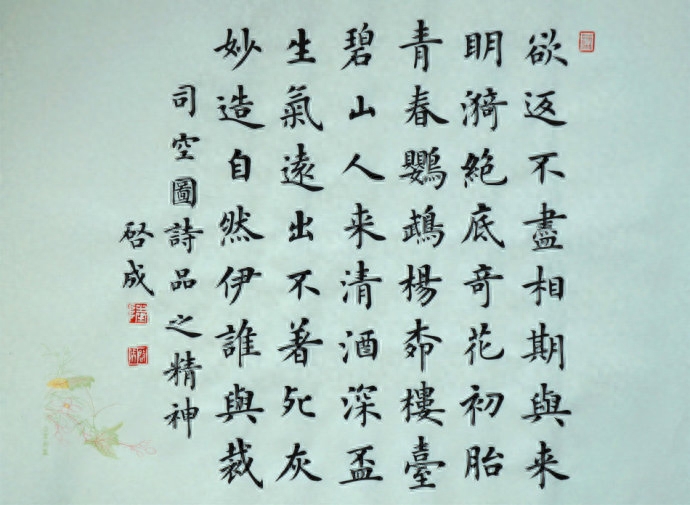 欲返不盡相期與来
明漪絶底奇花初胎
青春鸚鵡楊柳樓臺
碧山人来清酒深盃
生氣遠出不著死灰
妙造自然伊誰與裁
司空圖詩品之精神
啓成